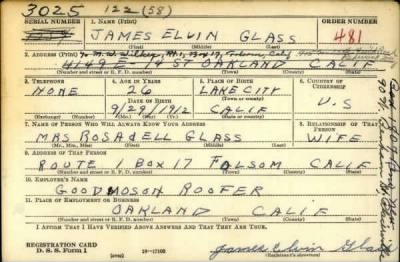 3025 122 (58)
SERIAL NUMBER 1. Name (Print) ORDER NUMBER
JAMES ELVIN GLASS 481
(First) (Middle) (Last)
2. Address (Print)
4149 E- 14 ST OAKLAND CALIF
(Number and street or R. F. D. number) (Town) (County) (State)
3. Telephone 4. Age in Years 5. Place of Birth 6. Country of Citizenship
NONE 26 LAKE CITY
Date of Birth (Town or county) U.S
9/29/1912 CALIF
(Mo.) (Day) (Yr.) (State or country)
7. Name of Person Who Will Always Know Your Address 8. Relationship of That Person
MRS ROSADELL GLASS WIFE
(Mr., Mrs., Miss) (First) (Middle) (Last)
9. Address of That Person
ROUTE 1 BOX 17 FOLSOM CALIF
(Number and street or R. F. D. number) (Town) (County) (State)
10. Employer's Name
GOODMOSON ROOFER
11. Place of Employment or Business
OAKLAND CALIF
(Number and street or R. F. D. number) (Town) (County) (State)
I Affirm That I Have Verified Above Answers and That They Are True.
REGISTRATION CARD
D. S. S. Form 1
James Elvin Glass